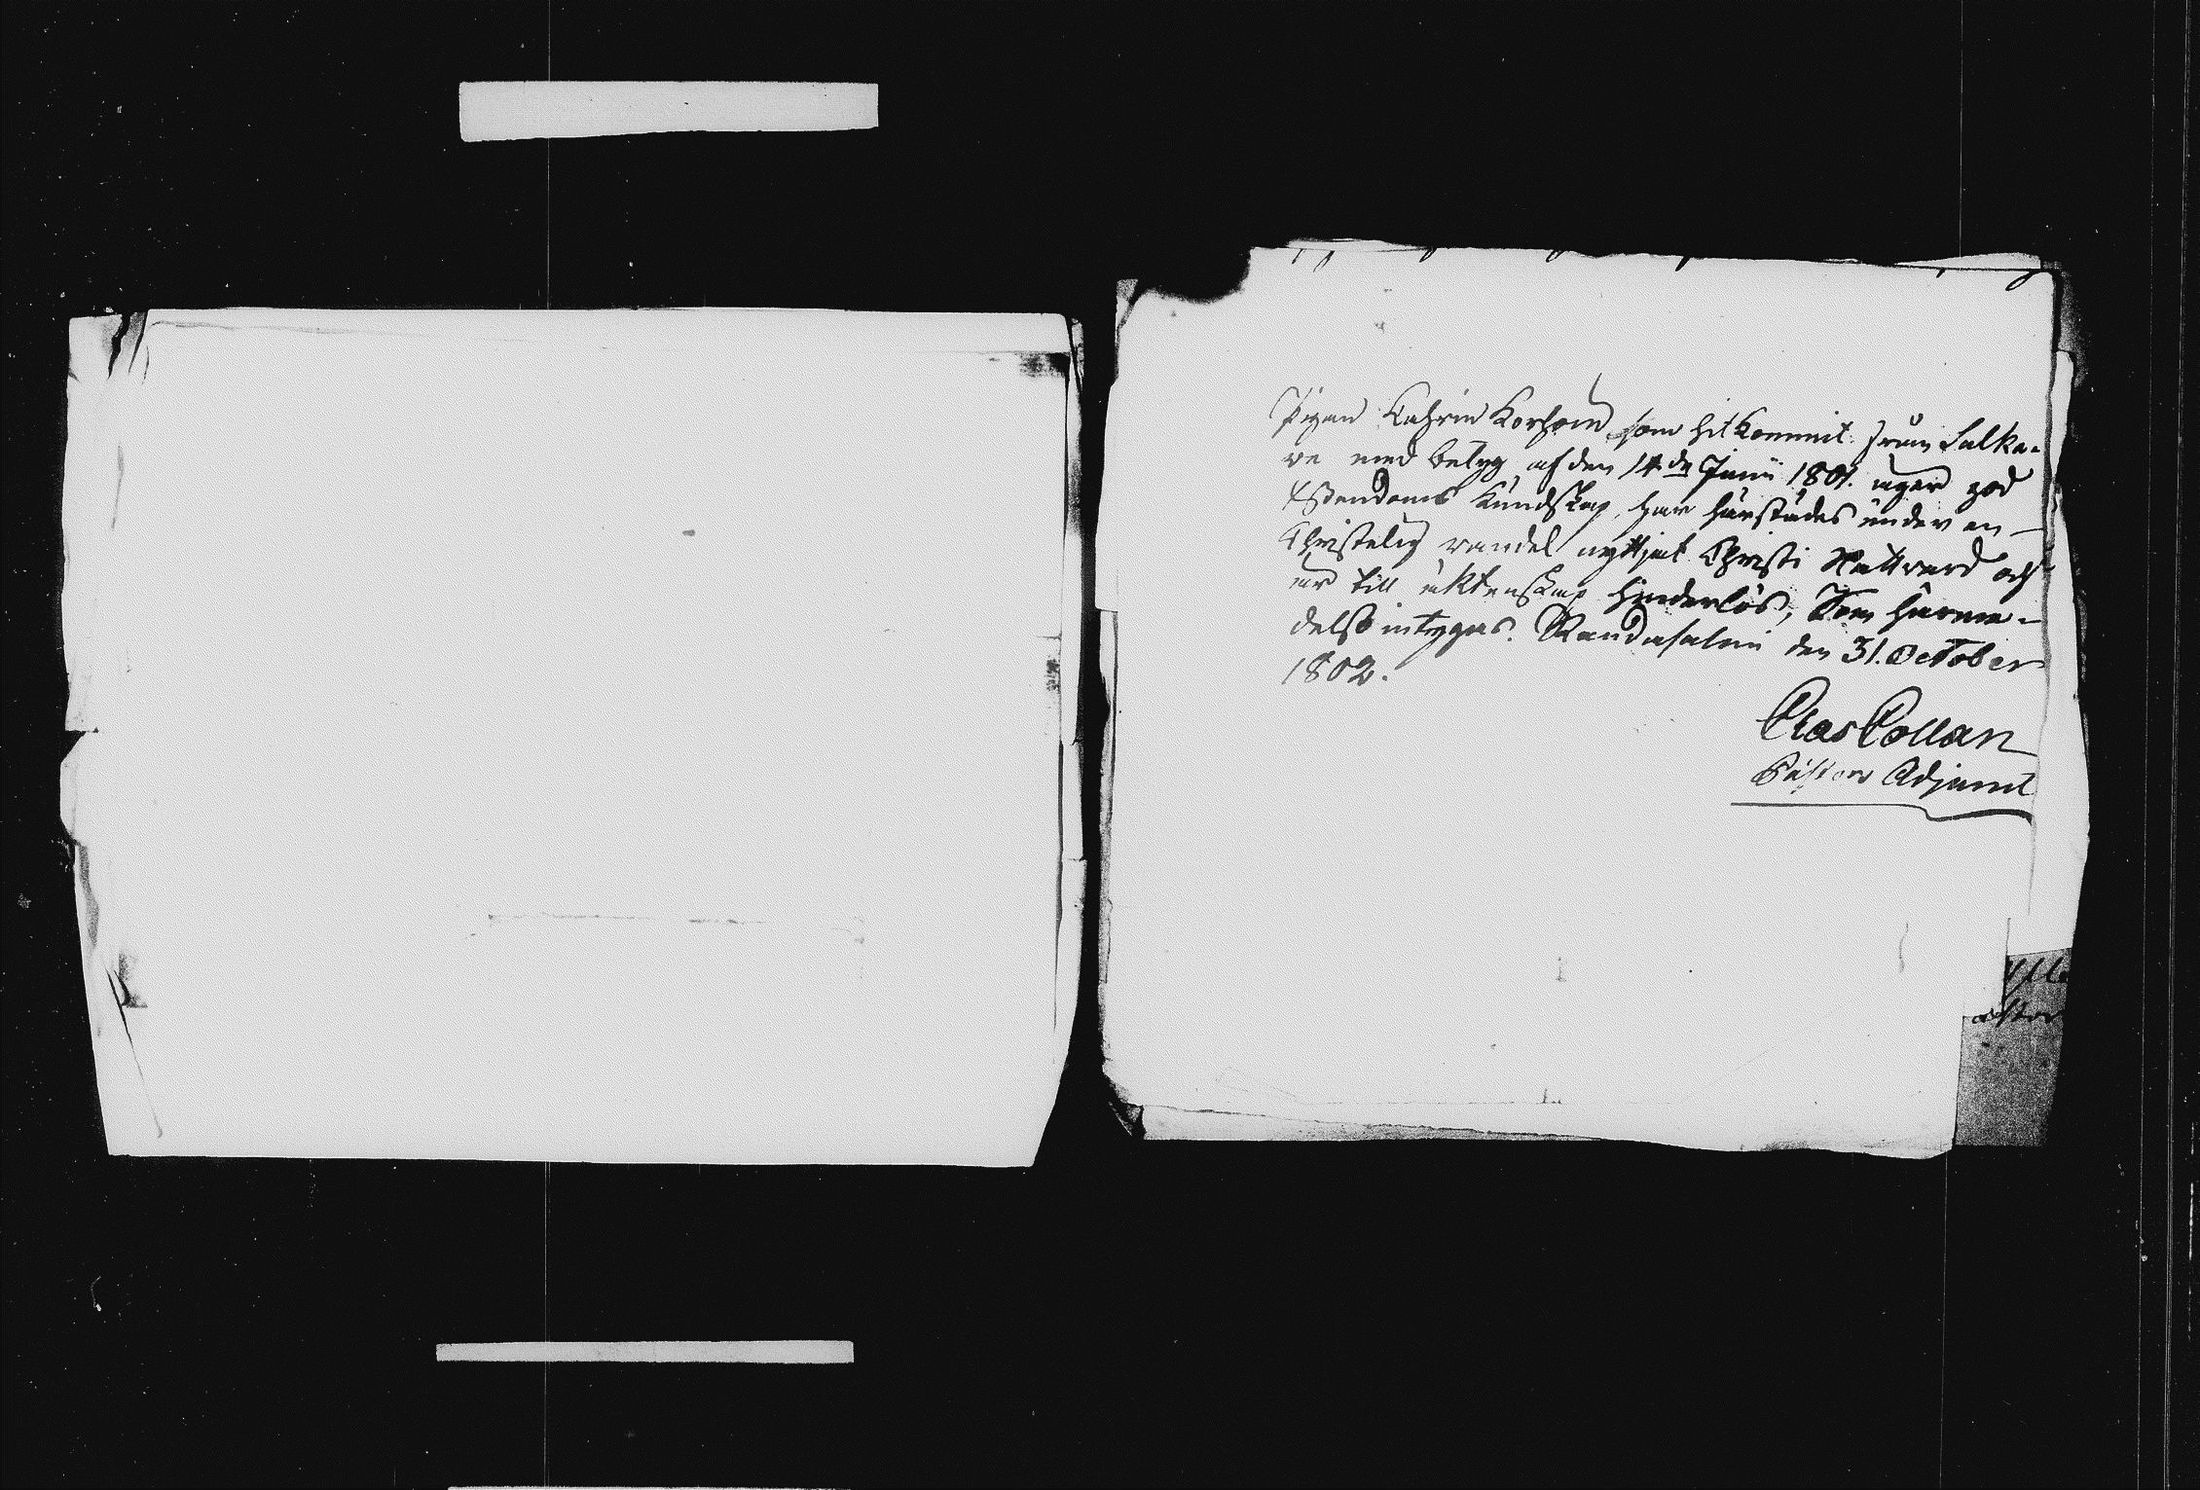 Pigan Cathrin Korhoin som hit kommit ifrån Salka-
re med betyg af den 14de Junii 1801. äger god
Xstendoms Kundskap, har härstädes under en
Christelig vandel nyttjat Christi Nattvard och
är till äktenskap hinderlös, Som härme-
delst intygas. Randasalmi den 31. October
1802.
Clas Collan
Pastors Adjunct